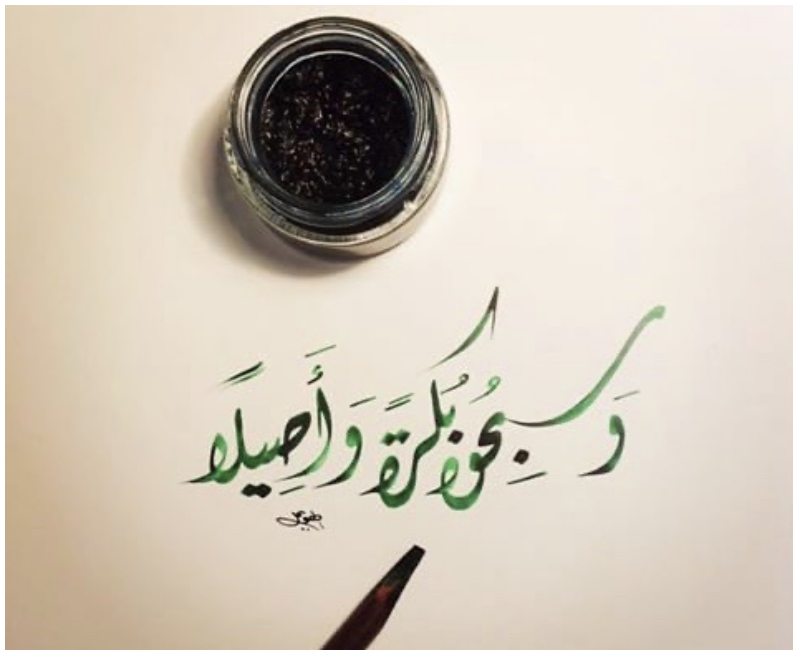 وَسبِحُوهُ بُكرَةً وَأَصِيلًا